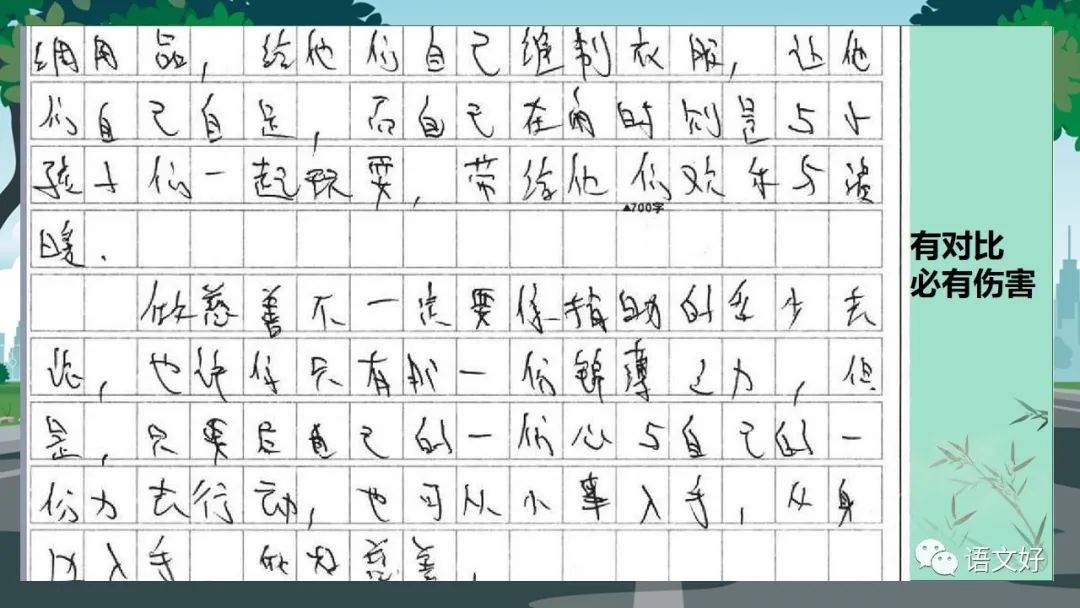 用品，给他们自己缝制衣服，让他
们自己自足，而自己在有时则是与小
孩子们一起玩耍，带给他们欢乐与温
▲700字
暖．
做慈善不一定要依捐助的多少去
论，也许你只有那一份绵薄之力，但
是，只要尽自己的一份心与自己的一
份力去行动，也可从小事入手，从身
入手 做好慈善．
有对比
必有伤害
语文好